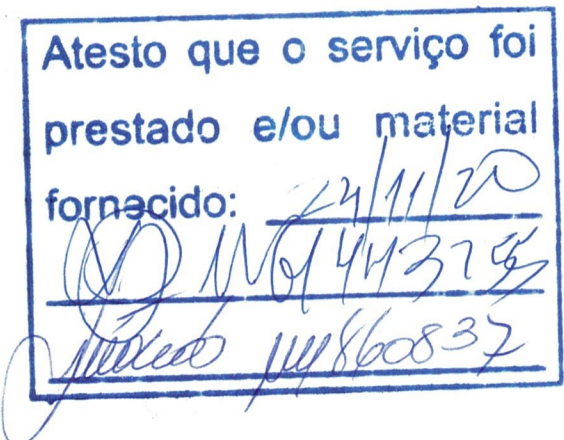 Atesto que o serviço foi
prestado e/ou material
fornecido: 24/11/20
860837